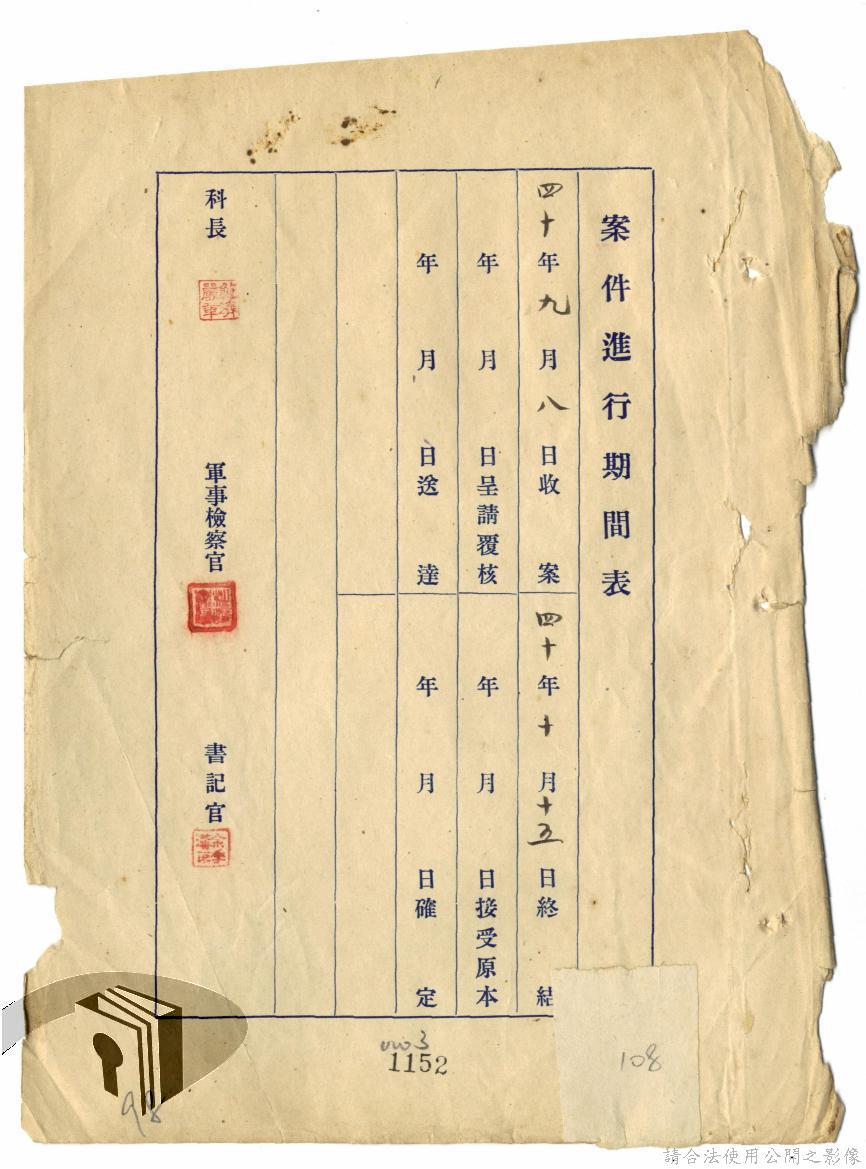 案件進行期間表
四十年九月八日收案
四十年十月十五日終結
年月日呈請覆核
年月日接受原本
年月日送達
年月日確定
科長
軍事檢察官
書記官
1152
108
98
請合法使用公開之影像